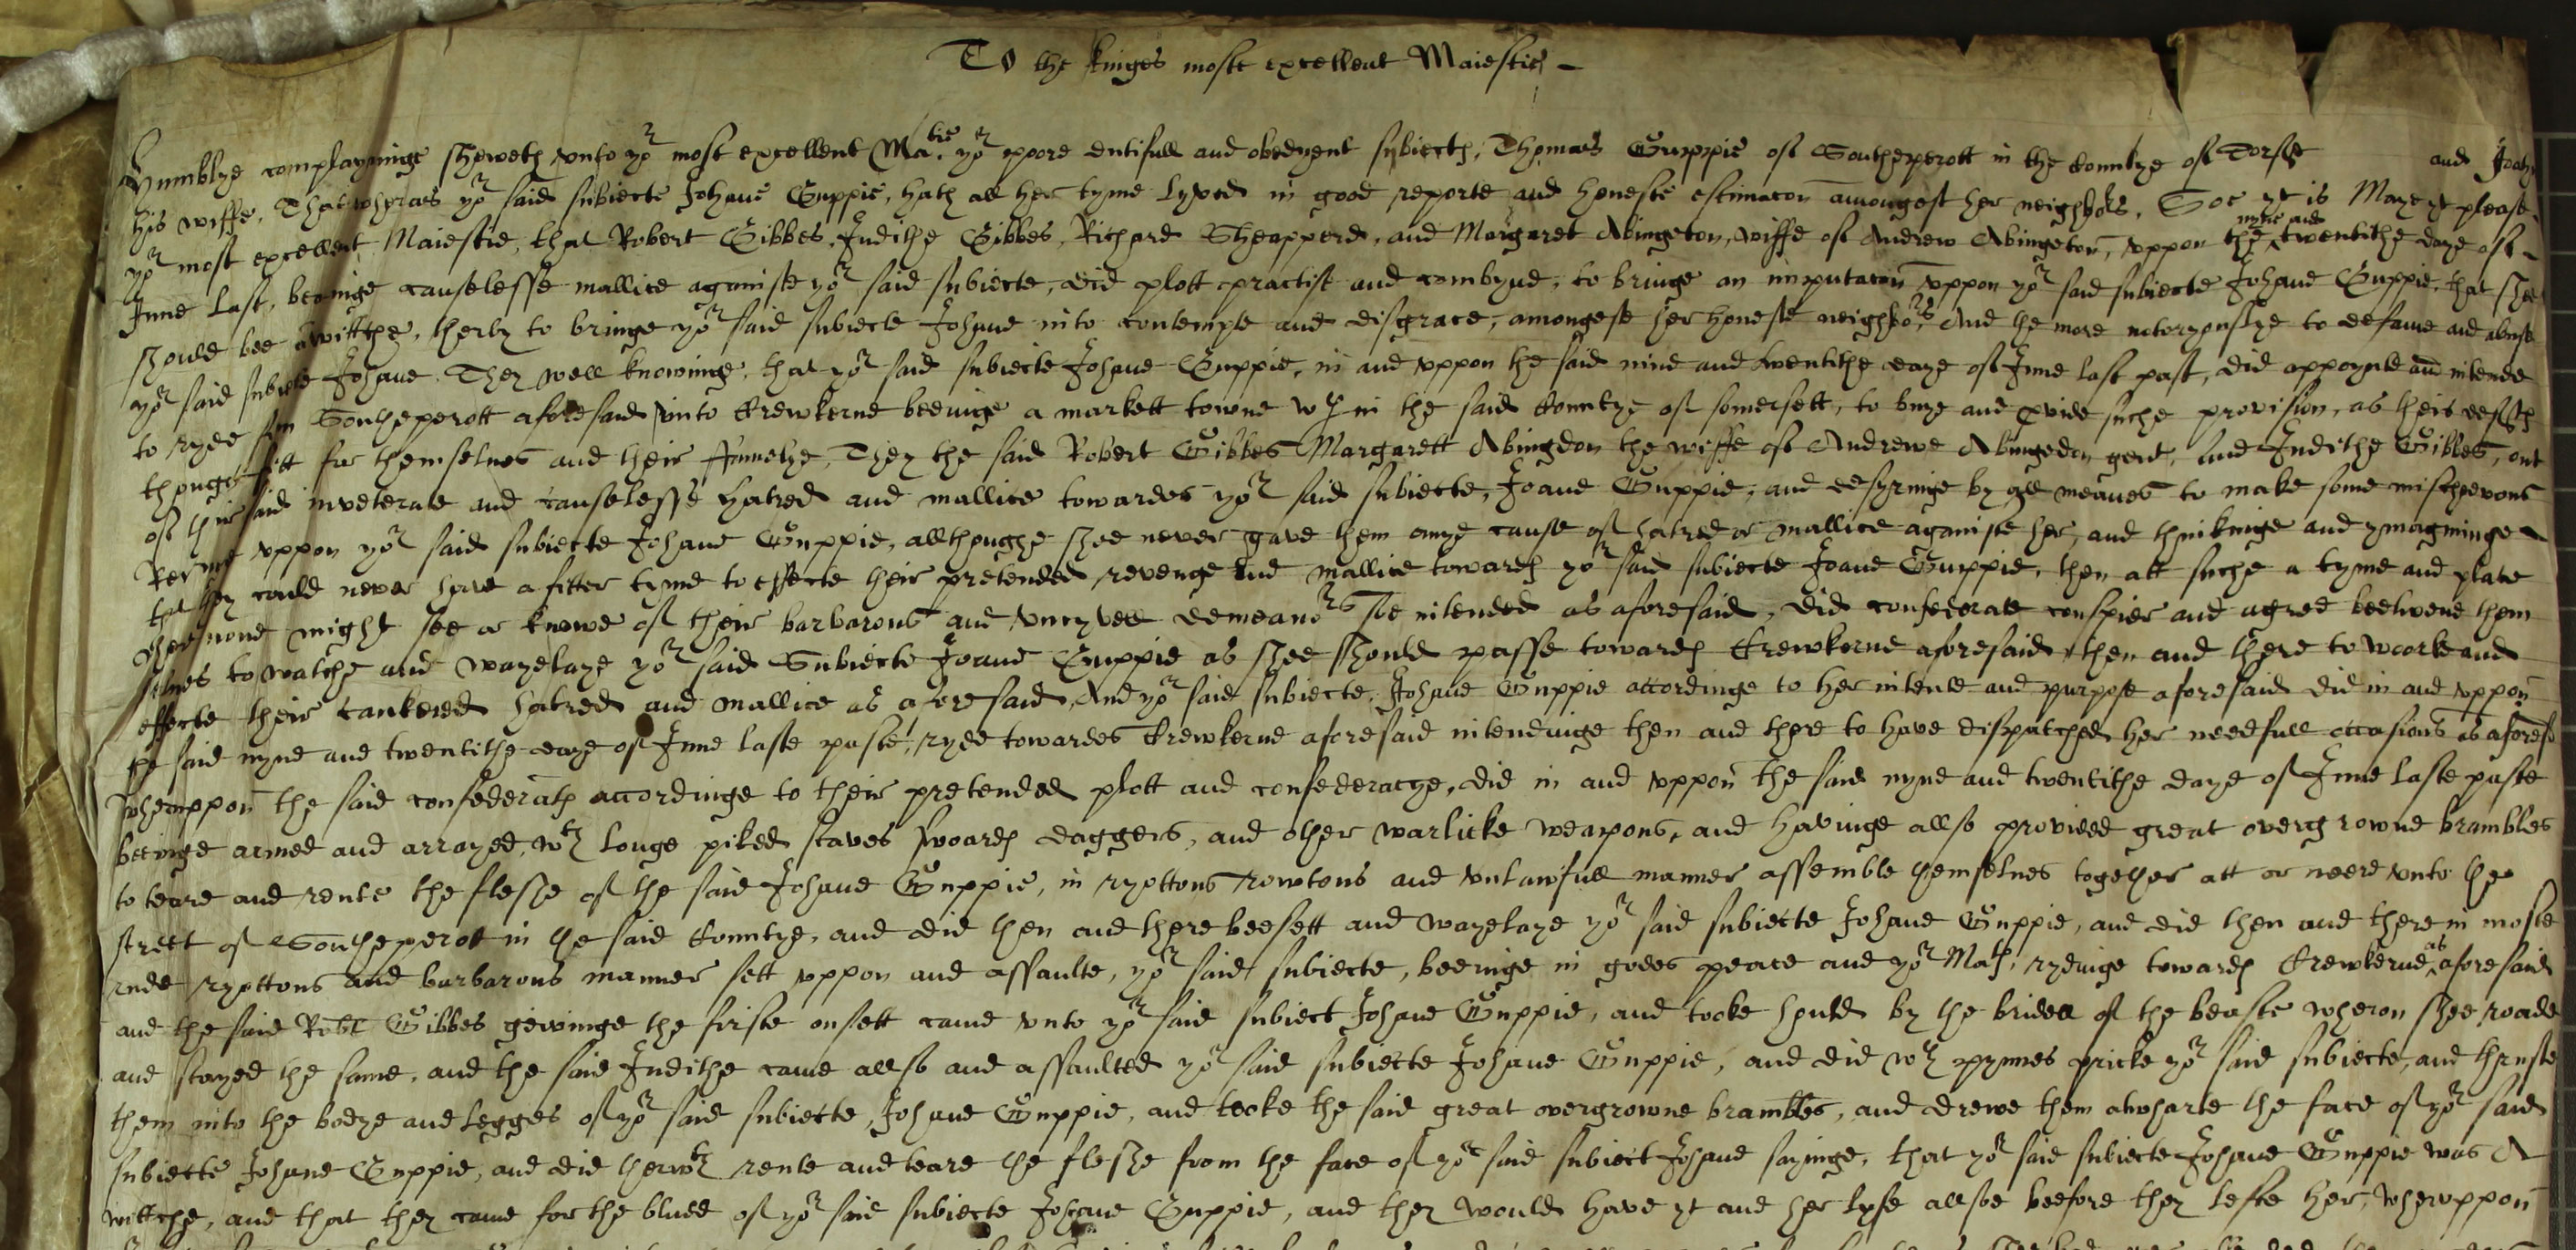 To the kinges moste excellent Maiestie
Humblye complayninge sheweth unto yor most excellent Matie yor poore dutifull and obedyent subiectes, Thomas Guppie of Southeperott in the Countye of Dorset and Joahne
his wiffe, That wheras yor said subiecte Johane Guppie, hath all her tyme lyved in good reporte and honeste estimacon amongest her neighbors, Soe yt is Maye yt please
yor most excellent Maiestie, that Robert Gibbes, Judithe Gibbes, Richard Sheapperd, and Margaret Abington, wiffe of Andrew Abington, uppon the nyne and twentithe daye of
June last, bearinge causelesse mallice againste yor said subiecte, did plott practise and combyne, to bringe an imputacon uppon yor said subiecte Johane Guppie, that shee
should bee a wittche, therby to bringe yor said subiecte Johane into contempte and disgrace, amongest her honeste neighbors, And the more notoryouslye to defame and abuse
yor said subiecte Johane. They well knowinge, that yor said subiecte Johane Guppie, in and uppon the said nine and twentithe daye of June last past, did appoynte and intende
to ryde from Southeperott aforesaid unto Crewkerne beeinge a markett towne wthin the said Countye of somersett, to buye and provide suche provision, as theis
thought fitt for themselves and their Famelye, They the said Robert Gibbes Margarett Abingdon the wiffe of Andrewe Abingedon gent, and Judithe Gibbes, out
of their said inveterate and causelesse hatred and mallice towardes yor said subiecte, Joane Guppie, and desyringe by all meanes to make some mischevous
uppon yor said subiecte Johane Guppie, allthoughe shee never gave them anye cause of hatred or mallice againste her, and thinkinge and ymagininge
that they could never have a fitter tyme to effecte their pretended revenge and mallice towardes yor said subiecte Joane Guppie, then att suche a tyme and place
wher none might see or knowe of their barbarous and uncyvell demeanors soe intended as aforesaid, did confederate conspier and agree beetwene them
selves to watche and wayelaye yor said Subiecte Joane Guppie as shee should passe towardes Crewkerne aforesaid then and there to woorke and
effecte their cankered hatred and mallice as aforesaid, And yor said subiecte, Johane Guppie accordinge to her intente and purpose aforesaid did in and uppon
the said nyne and twentithe daye of June laste paste, ryde towardes Crewkerne aforesaid intendinge then and there to have dispatched her needfull occasions as aforesd
Wheruppon the said confederates accordinge to their pretended plott and confederacye, did in and uppon the said nyne and twentithe daye of June laste paste
beeinge armed and arrayed, wth longe piked staves swoardes daggers, and other warlicke weapons, and havinge allso provided great overgrowne brambles
to teare and rente the fleshe of the said Johane Guppie, in ryottous rowtous and unlawfull manner assemble themselves together att or neere unto the
strett of Southeperott in the said Countye, and did then and there beesett and wayelaye yor said subiecte Johane Guppie, and did then and there in moste
rude ryottous and barbarous manner sett uppon and assaulte, yor said subiecte, beeinge in godes peace and yor Maties, rydinge towardes Crewkerne as aforesaid
and the said Robt Gibbes gevinge the firste onsett came unto yor said subiect Johane Guppie, and tooke hould by the bridell of the beaste wheron shee roade
and stayed the same, and the said Judithe came allso and assaulted yor said subiecte Johane Guppie, and did wth pynnes pricke yor said subiecte, and thruste
them into the bodye and legges of yor said subiecte, Johane Guppie, and tooke the said great overgrowne brambles, and drewe them athwarte the face of yor said
subiecte Johane Guppie, and did therwth rente and teare the fleshe from the face of yor said subiect Johane sayinge, that yor said subiecte Johane Guppie was A
wittche, and that they came for the blude of yor said subiecte Johane Guppie, and they would have yt and her lyfe allsoe beefore they lefte her, wheruppon